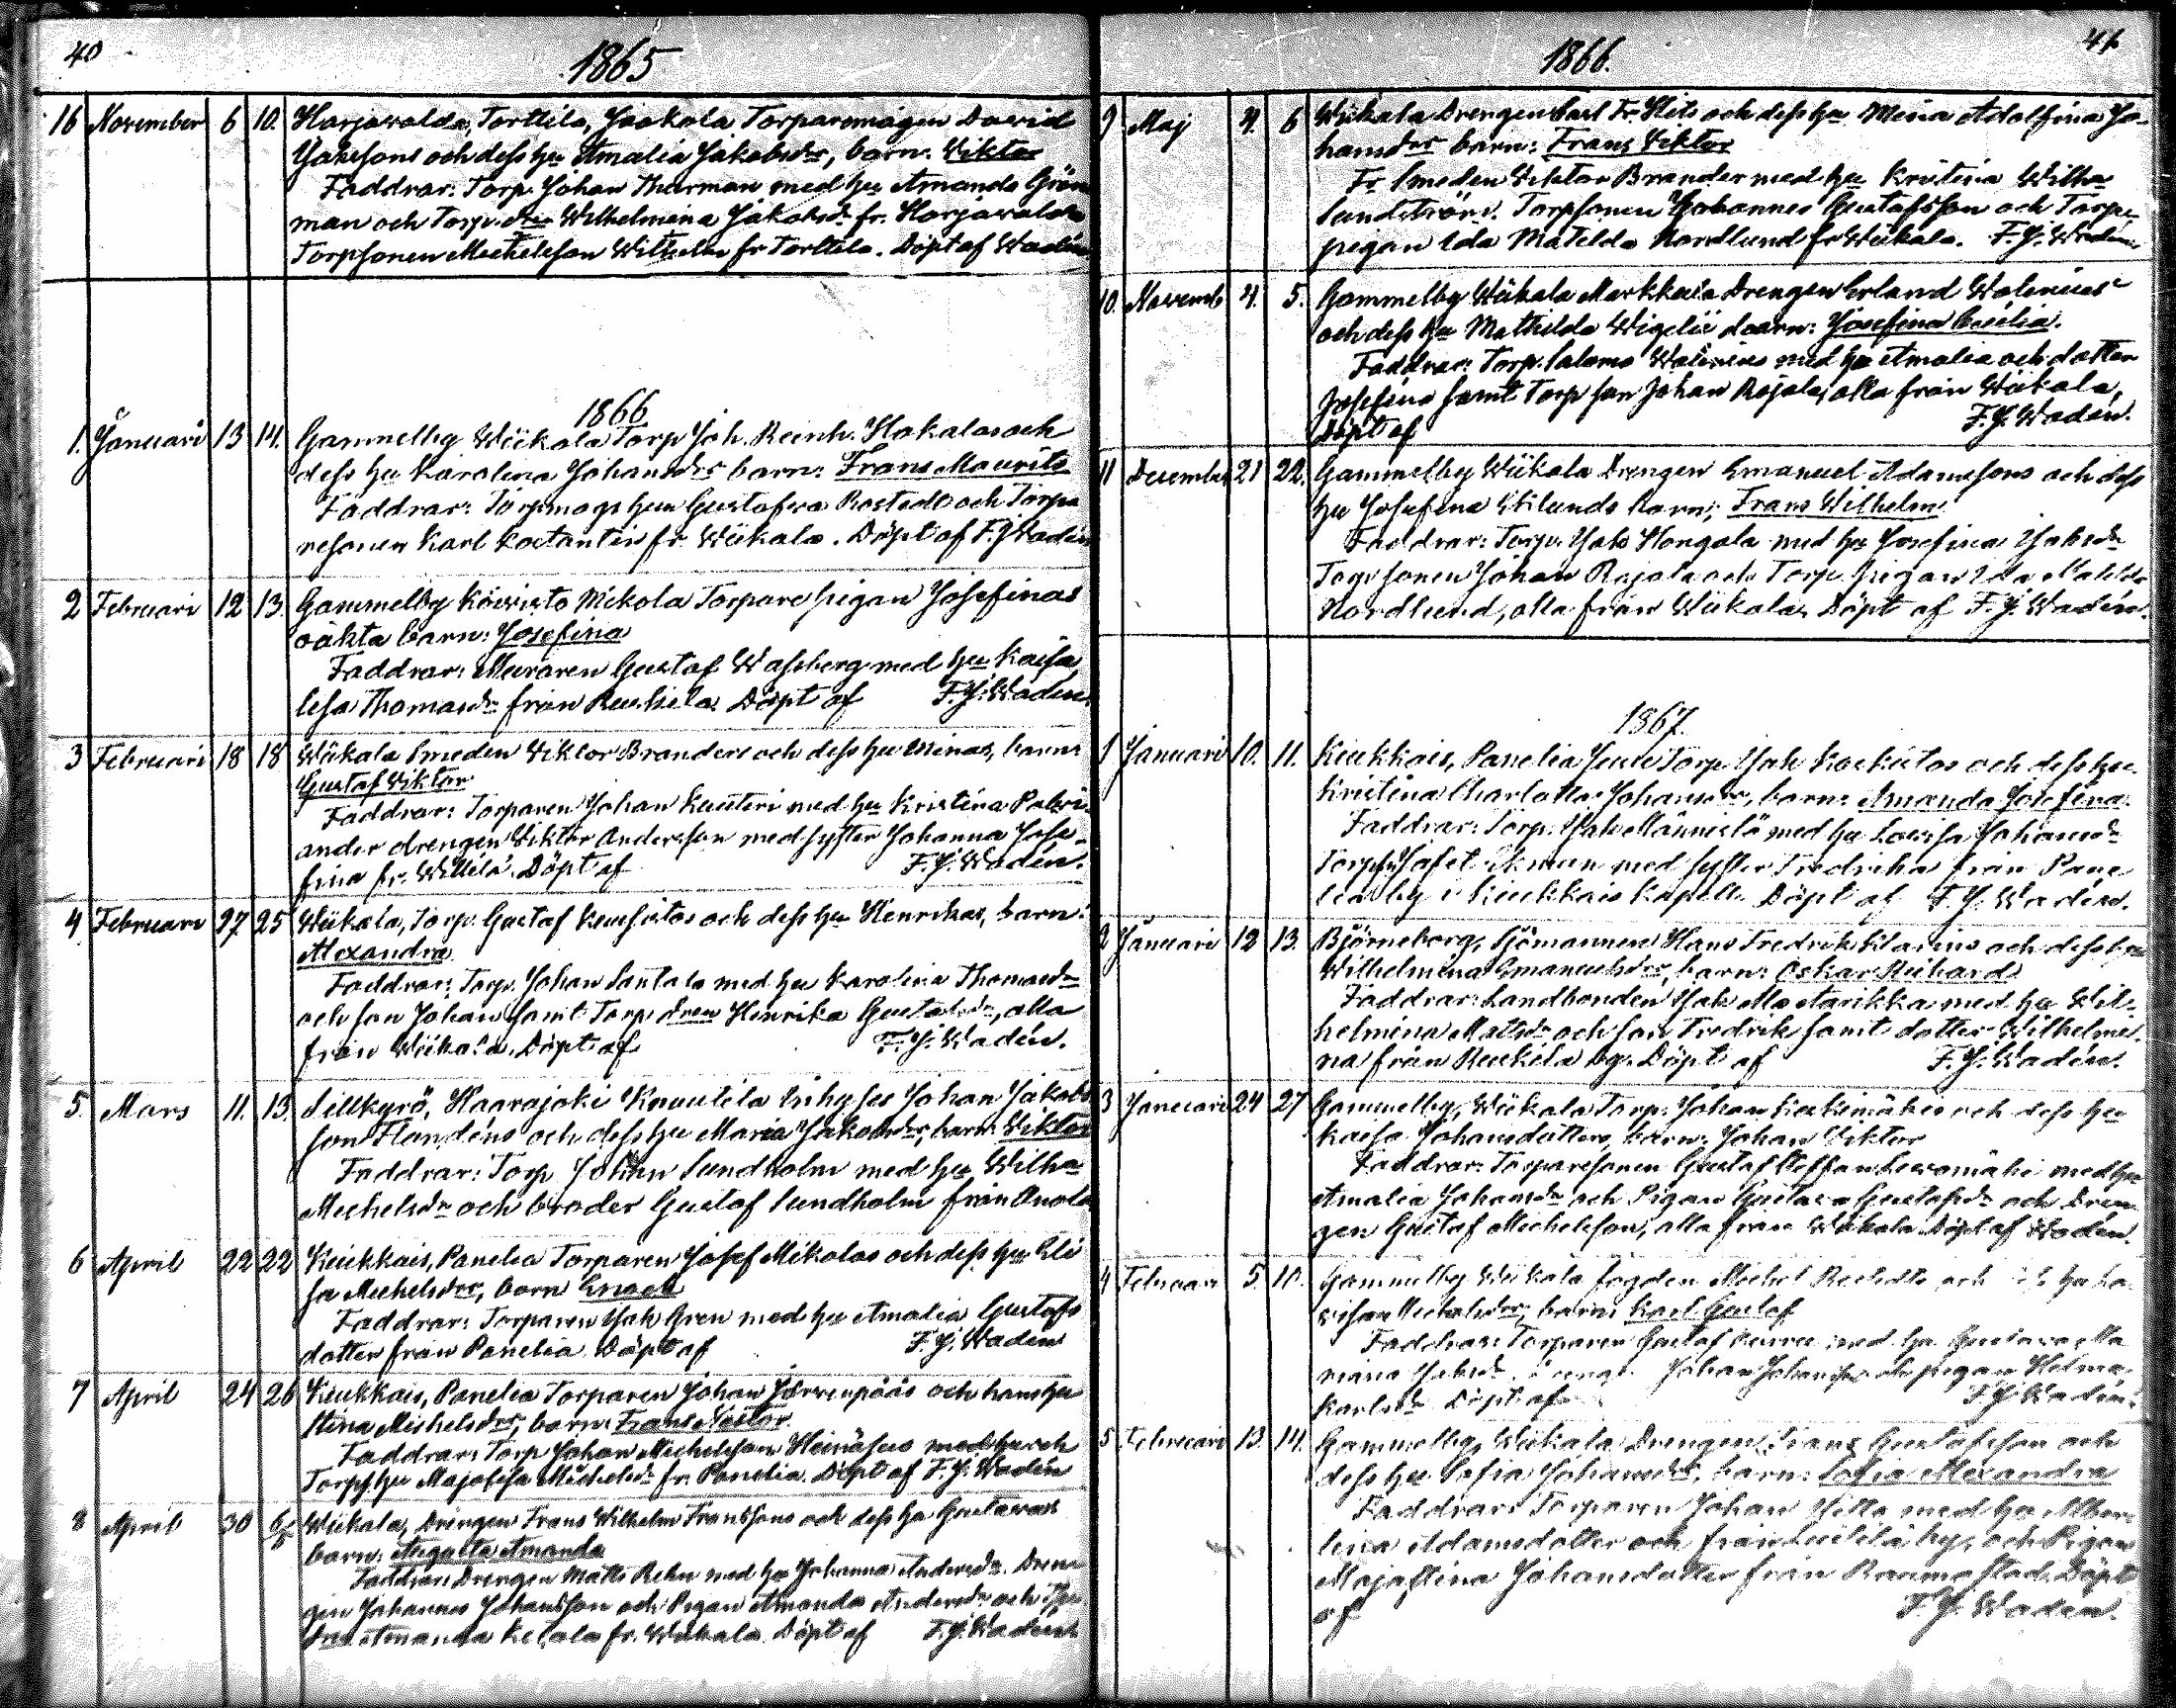 40
1865
16 November 6 10. Harjavalda, Torttila, Jaakola Torparemågen David
Jakefsons och dess hu Amalia Jakobsdrs, barn: Viktor
Faddrar: Torp. Johan Thurman med hu Amanda Grön
man och Torp. dra Wilhelmina Jakobsdr fr. Harjavalda
Torpsonen Michelsson Wilhelm fr Torttila. Döpt af Wadén
1866
1. Januari 13 14. Gammelby Wiikala Torp Joh. Reinh. Hakalas och
dess hu Karolina Johansdrs barn: Frans Maurits
Faddrar: Torpmågs hun Gustafva Rostedt och Torpa
resonen Karl fr. Wiikala. Döpt af F. J. Wadén
2 Februari 12 13. Gammelby Koivisto Mikola Torpare pigan Josefinas
oäkta barn: Josefina
Faddrar: Muraren Gustaf Wassberg med hu Kaisa
lisa Thomasdr från Döpt af F. J. Wadén
3 Februari 18 18 Wiikala Smeden Viktor Branders och dess hu Minas, barn:
Gustaf Viktor
Faddrar: Torparen Johan med hu Kristina
ander drengen Viktor Andersson med syster Johanna Jose-
fina fr. Döpt af F. J. Wadén.
4 Februari 25 Wiikala, Torp. Gustaf och dess hu Henrikas, barn:
Alexandra
Faddrar: Torp. Johan Santala med hu Karolina Thomasdr
och son Johan samt Torp. dren Henrika Gustafsdr, alla
från Wiikala. Döpt af F. J. Wadén.
5. Mars 11. 13. Haarajoki Knuutila Inhyses Johan Jakobs
son och dess hu Maria Jakobsdrs, barn: Viktor
Faddrar: Torp Johan Sundholm med hu Wilha
Michelsdr och broder Gustaf Sundholm från Anola
6 April 22 22 Kiukkais, Panelia Torparen Josef Mikolas och dess hu Eli
sa Michelsdrs, barn Enock
Faddrar: Torparen Jak Gren med hu Amalia Gustafs
dotter från Panelia Döpt af F. J. Wadén
7 April 24 26 Kiukkais, Panelia Torparen Johan och hans hu
Stina Michelsdrs, barn: Frans Nestor
Faddrar: Torp Johan Michelsson med hu och
Torp. hu Majalisa Michelsdr fr. Panelia. Döpt af F. J. Wadén
8 April 30 Wiikala, Drengen Frans Wilhelm Franssons och dess hu Gustavas
barn: Augusta Amanda
Faddrar: Drengen Matts Rehn med hu Johanna Andersdr. Dren
gen Johannes Johansson och Pigan Amanda Andersdr och
Amanda fr. Wiikala. Döpt af F. J. Wadén
1866.
41
9 Maj 4. 6 Wiikala Drengen Carl Fr. och dess hu Maria Adolfina Jo-
hansdrs barn: Frans Viktor
Fr. Smeden Viktor Brander med hu Kristina Wilha
Sundström. Torpsonen Johannes Gustafsson och Torpe
pigan Ida Matilda Nordlund fr Wiikala. F. J. Wadén.
10. Novemb 4. 5. Gammelby Wiikala Markkula Drengen Erland Walenius
och dess hu Mathilda barn: Josefina Cecilia.
Faddrar: Torp. Salomo Walenius med hu Amalia och dotter
Josefina samt Torp son Johan Rajala, alla från Wiikala,
Döpt af F. J. Wadén.
11 December 21 22. Gammelby Wiikala Drengen Emanuel Adamssons och dess
hu Josefina Eklunds barn; Frans Wilhelm
Faddrar: Torp. Jak Hongola med hu Josefina Jaksdr
Torp sonen Johan Rajala och Torp. pigan Ida Matilda
Nordlund, alla från Wiikala. Döpt af F. J. Wadén.
1867.
1 Januari 10. 11. Kiukkais, Panelia Torp. Jak och dess hu
Kristina Charlotta Johansdrs, barn: Amanda Josefina.
Faddrar: Torp. Jak Männistö med hu Lovisa Johansdr
Torps. Jafet Ekman med syster Fredrika från Pane
lia by i Kiukkais Kapell. Döpt af F. J. Wadén.
2 Januari 12 13. Björneborg, Sjömannen Hans Fredrik och dess hu
Wilhelmina Emanuelsdrs, barn: Oskar Richard
Faddrar: Landbonden Jak med hu Wil-
helmina Matsdr och son Fredrik samt dotter Wilhelmi
na från by. Döpt af F. J. Wadén.
3 Januari 24 27 Gammelby, Wiikala Torp. Johan och dess hu
Kaisa Johansdotters, barn: Johan Viktor
Faddrar: Torparesonen Gustaf Steffan med hu
Amalia Johansdr och Pigan Gustava Gustafsdr och Dren
gen Gustaf Michelsson, alla från Wiikala Döpt af Wadén.
4 Februari 5. 10. Gammelby Wiikala fogden Michel och hu
Michelsdrs, barn: Karl Gustaf
Faddrar: Torparen Gustaf med hu Gustava Ma
riana Jaksdr Johan Johansson och pigan Helma
Karlsdr Döpt af F. J. Wadén.
5 Februari 13. 14. Gammelby, Wiikala Drengen Frans Gustafsson och
dess hu Sofia Johansdrs, barn: Sofia Alexandra
Faddrar: Torparen Johan med hu Alber
tina Adamsdotter och från by, och Pigan
Majastina Johansdotter från Raumo stad. Döpt
af F. J. Wadén.